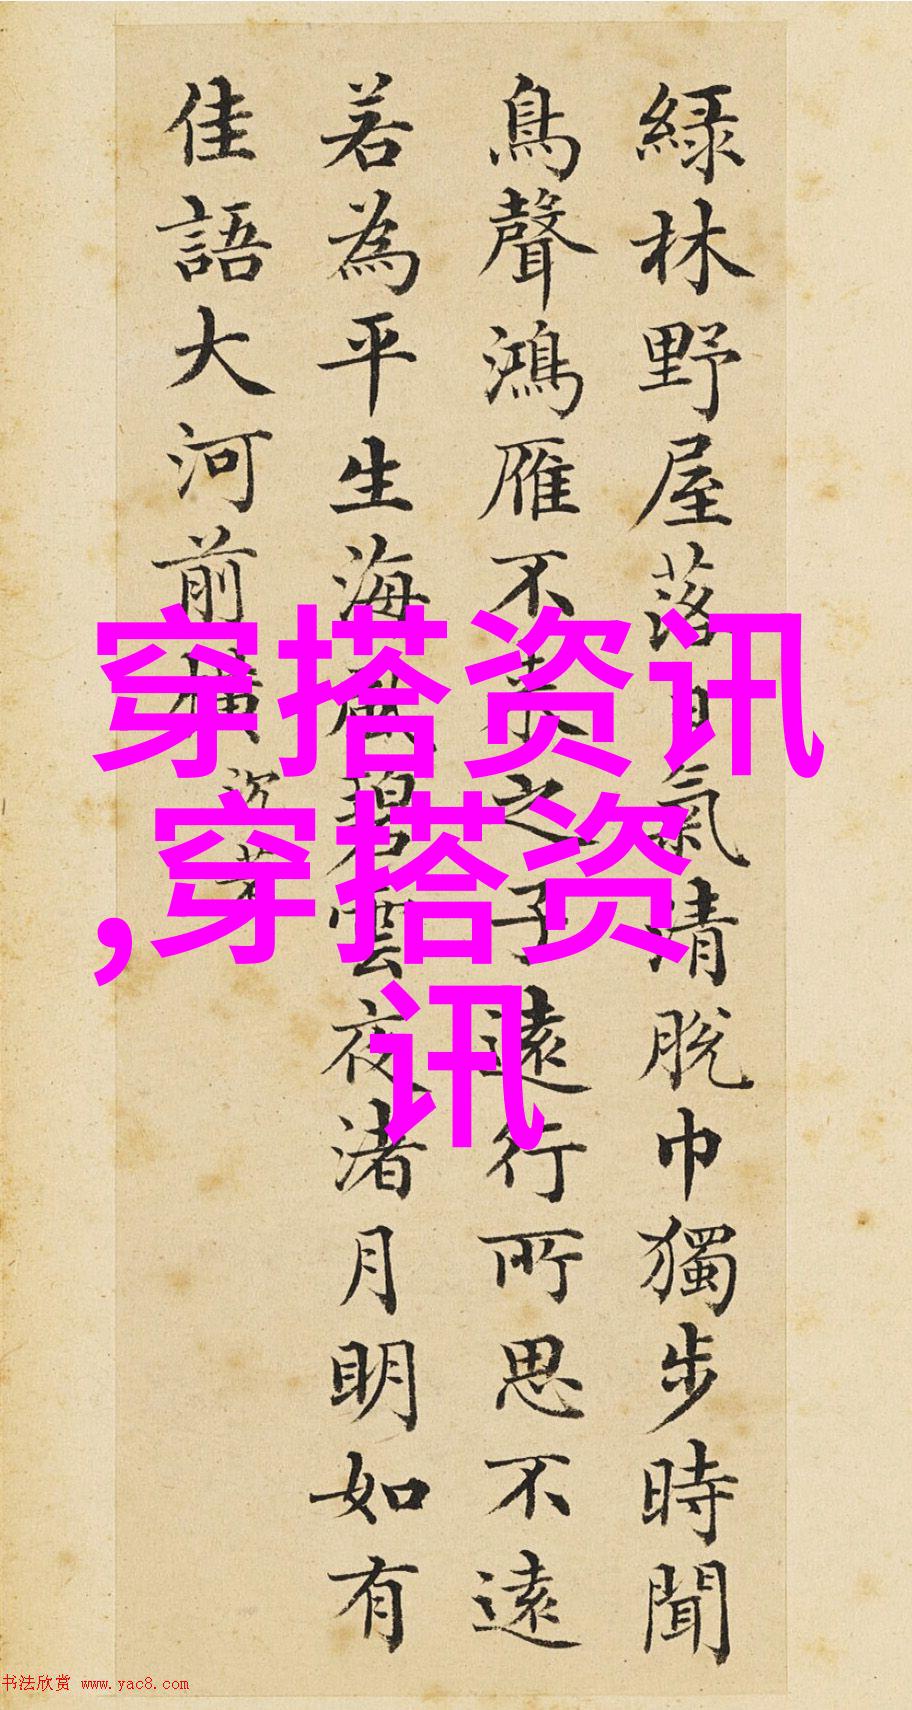 綠林野屋落日氣清脫巾獨步時聞
鳥聲鴻雁不來之子遠行所思不遠
若為平生海風碧雲夜渚月明如有
佳語大河前橫 沈荃
穿搭资讯
,穿搭资
讯
书法欣赏 www.yac8.com